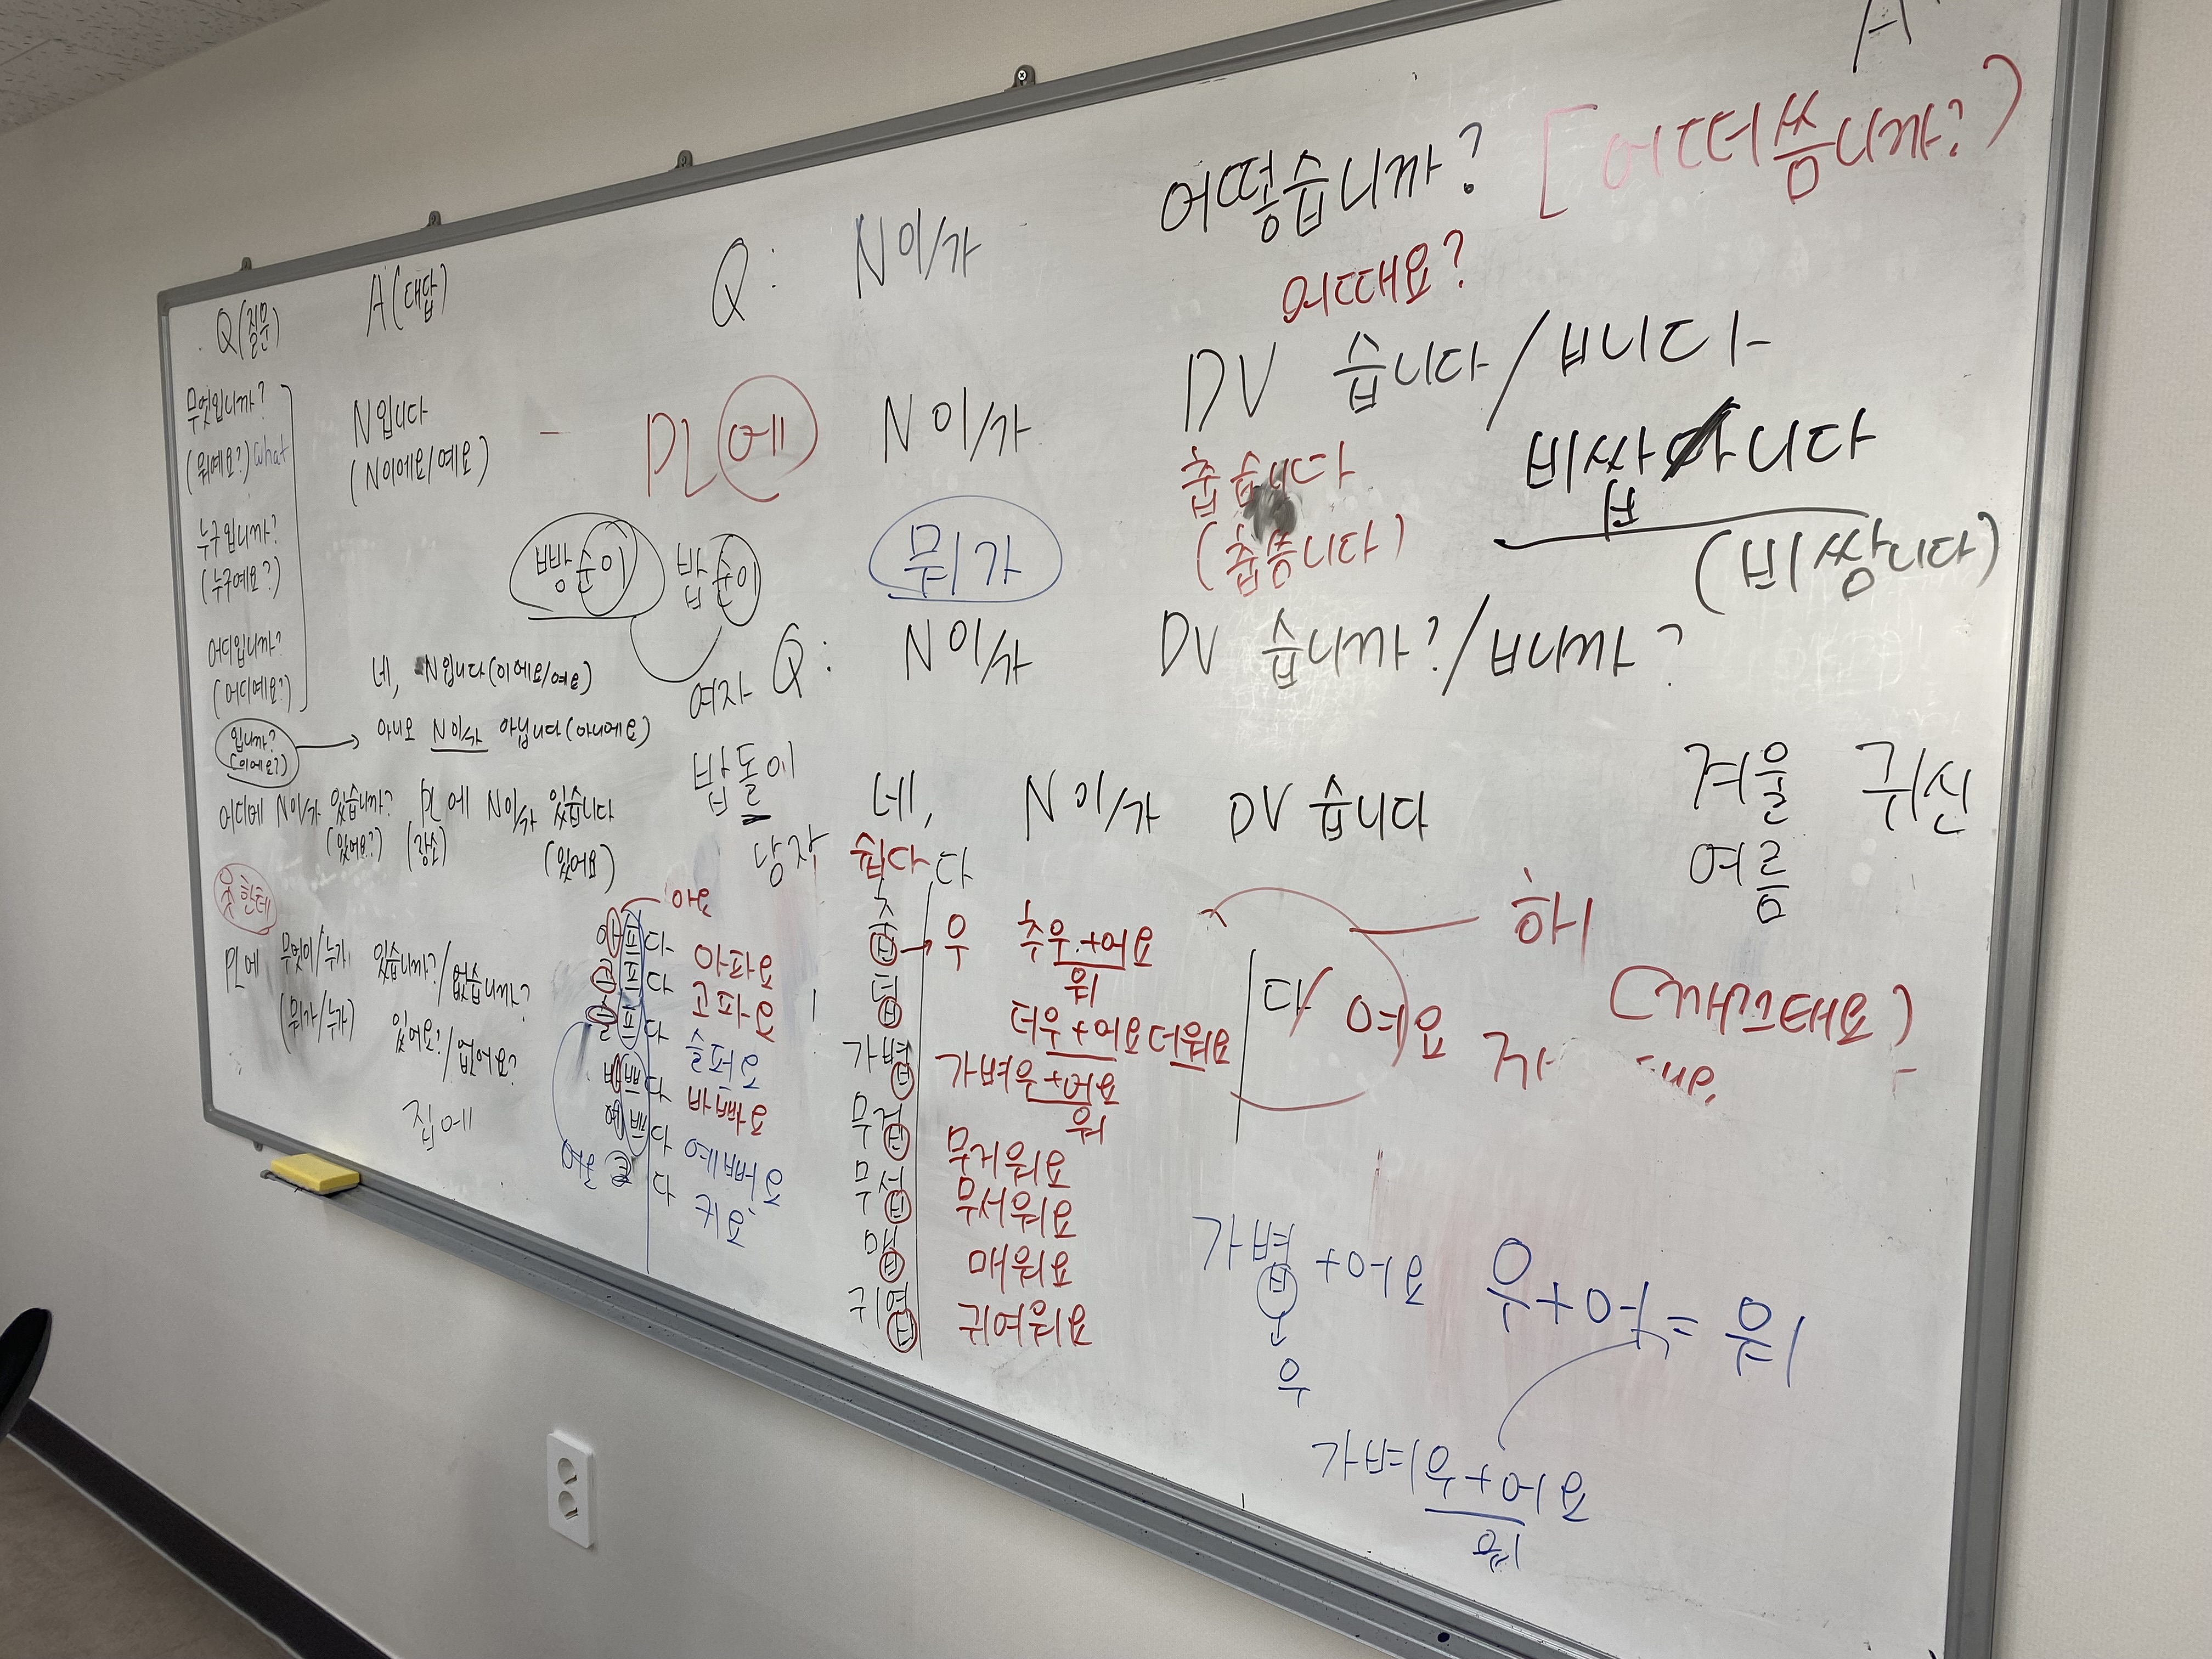 Q(질문) A(대답)
무엇입니까?
(뭐예요?) what
N입니다
(N이에요/예요)
누구입니까?
(누구예요?)
어디입니까?
(어디예요?)
네, N입니다(이에요/예요)
입니까?
(이에요?)
아니오 N이/가 아닙니다(아니에요)
어디에 N이/가 있습니까? PL에 N이/가 있습니다
(있어요?) (장소) (있어요)
한테
PL에 무엇이/누가 있습니까?/없습니까?
(뭐가/누가) 있어요?/없어요?
집에
A
Q: N이/가 어떻습니까? [어떠씀니까?)
어때요?
PL에 N이/가 DV 습니다/ㅂ니다
춥습니다
(춥씀니다)
비싸니다
ㅂ
(비쌈니다)
빵순이 밥순이
뭐가
여자
Q: N이/가 DV 습니까?/ㅂ니까?
밥돌이
남자
네, N이/가 DV 습니다
겨울 귀신
여름
아프다 아파요
고프다 고파요
슬프다 슬퍼요
바쁘다 바빠요
예쁘다 예뻐요
크다 커요
쉽다 다
춥 → 우 추우+어요
워
덥 더우+어요 더워요
가볍 가벼우+어요
워
무겁 무거워요
무섭 무서워요
맵 매워요
귀엽 귀여워요
다 여요
해
(깨끄태요)
가볍+어요 우+어=워
ㅂ
우
가벼우+어요
워